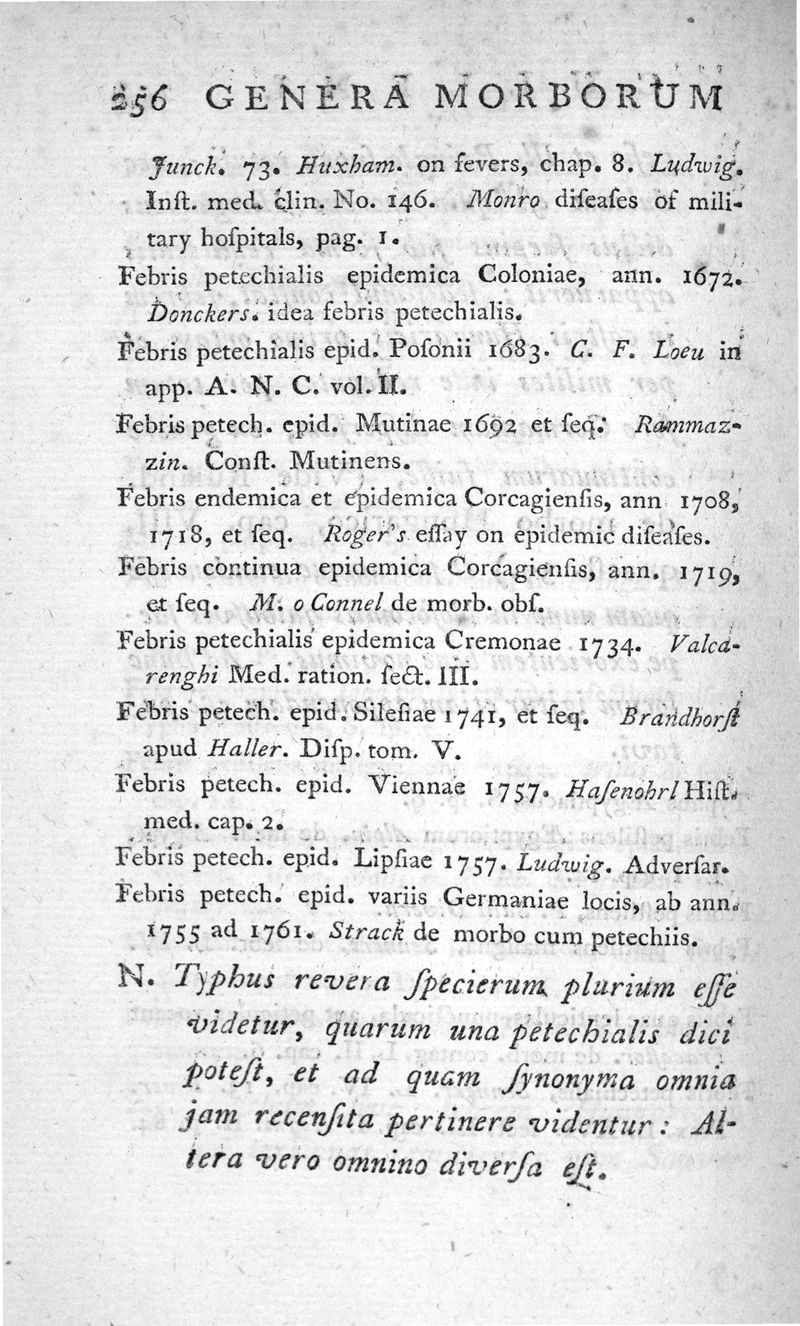 256 GENERA MORBORUM
Junck. 73. Huxham. on fevers, chap. 8. Ludwig.
Inſt. med. clin. No. 146. Monro diſeaſes of mili-
tary hoſpitals, pag. 1.
Febris petechialis epidemica Coloniae, ann. 1672.
Donckers. idea febris petechialis.
Febris petechialis epid. Poſonii 1683. C. F. Loeu in
app. A. N. C. vol. II.
Febris petech. epid. Mutinae 1692 et ſeq. Rammaz-
zin. Conſt. Mutinens.
Febris endemica et epidemica Corcagienſis, ann 1708,
1718, et ſeq. Roger's eſſay on epidemic diſeaſes.
Febris continua epidemica Corcagienſis, ann. 1719,
et ſeq. M. o Connel de morb. obſ.
Febris petechialis epidemica Cremonae 1734. Valca-
renghi Med. ration. ſect. III.
Febris petech. epid. Sileſiae 1741, et ſeq. Brandhorſt
apud Haller. Diſp. tom. V.
Febris petech. epid. Viennae 1757. Haſenohrl Hiſt.
med. cap. 2.
Febris petech. epid. Lipſiae 1757. Ludwig. Adverſar.
Febris petech. epid. variis Germaniae locis, ab ann.
1755 ad 1761. Strack de morbo cum petechiis.
N. Typhus revera ſpecierum plurium eſſe
videtur, quarum una petechialis dici
poteſt, et ad quam ſynonyma omnia
jam recenſita pertinere videntur: Al-
tera vero omnino diverſa eſt.